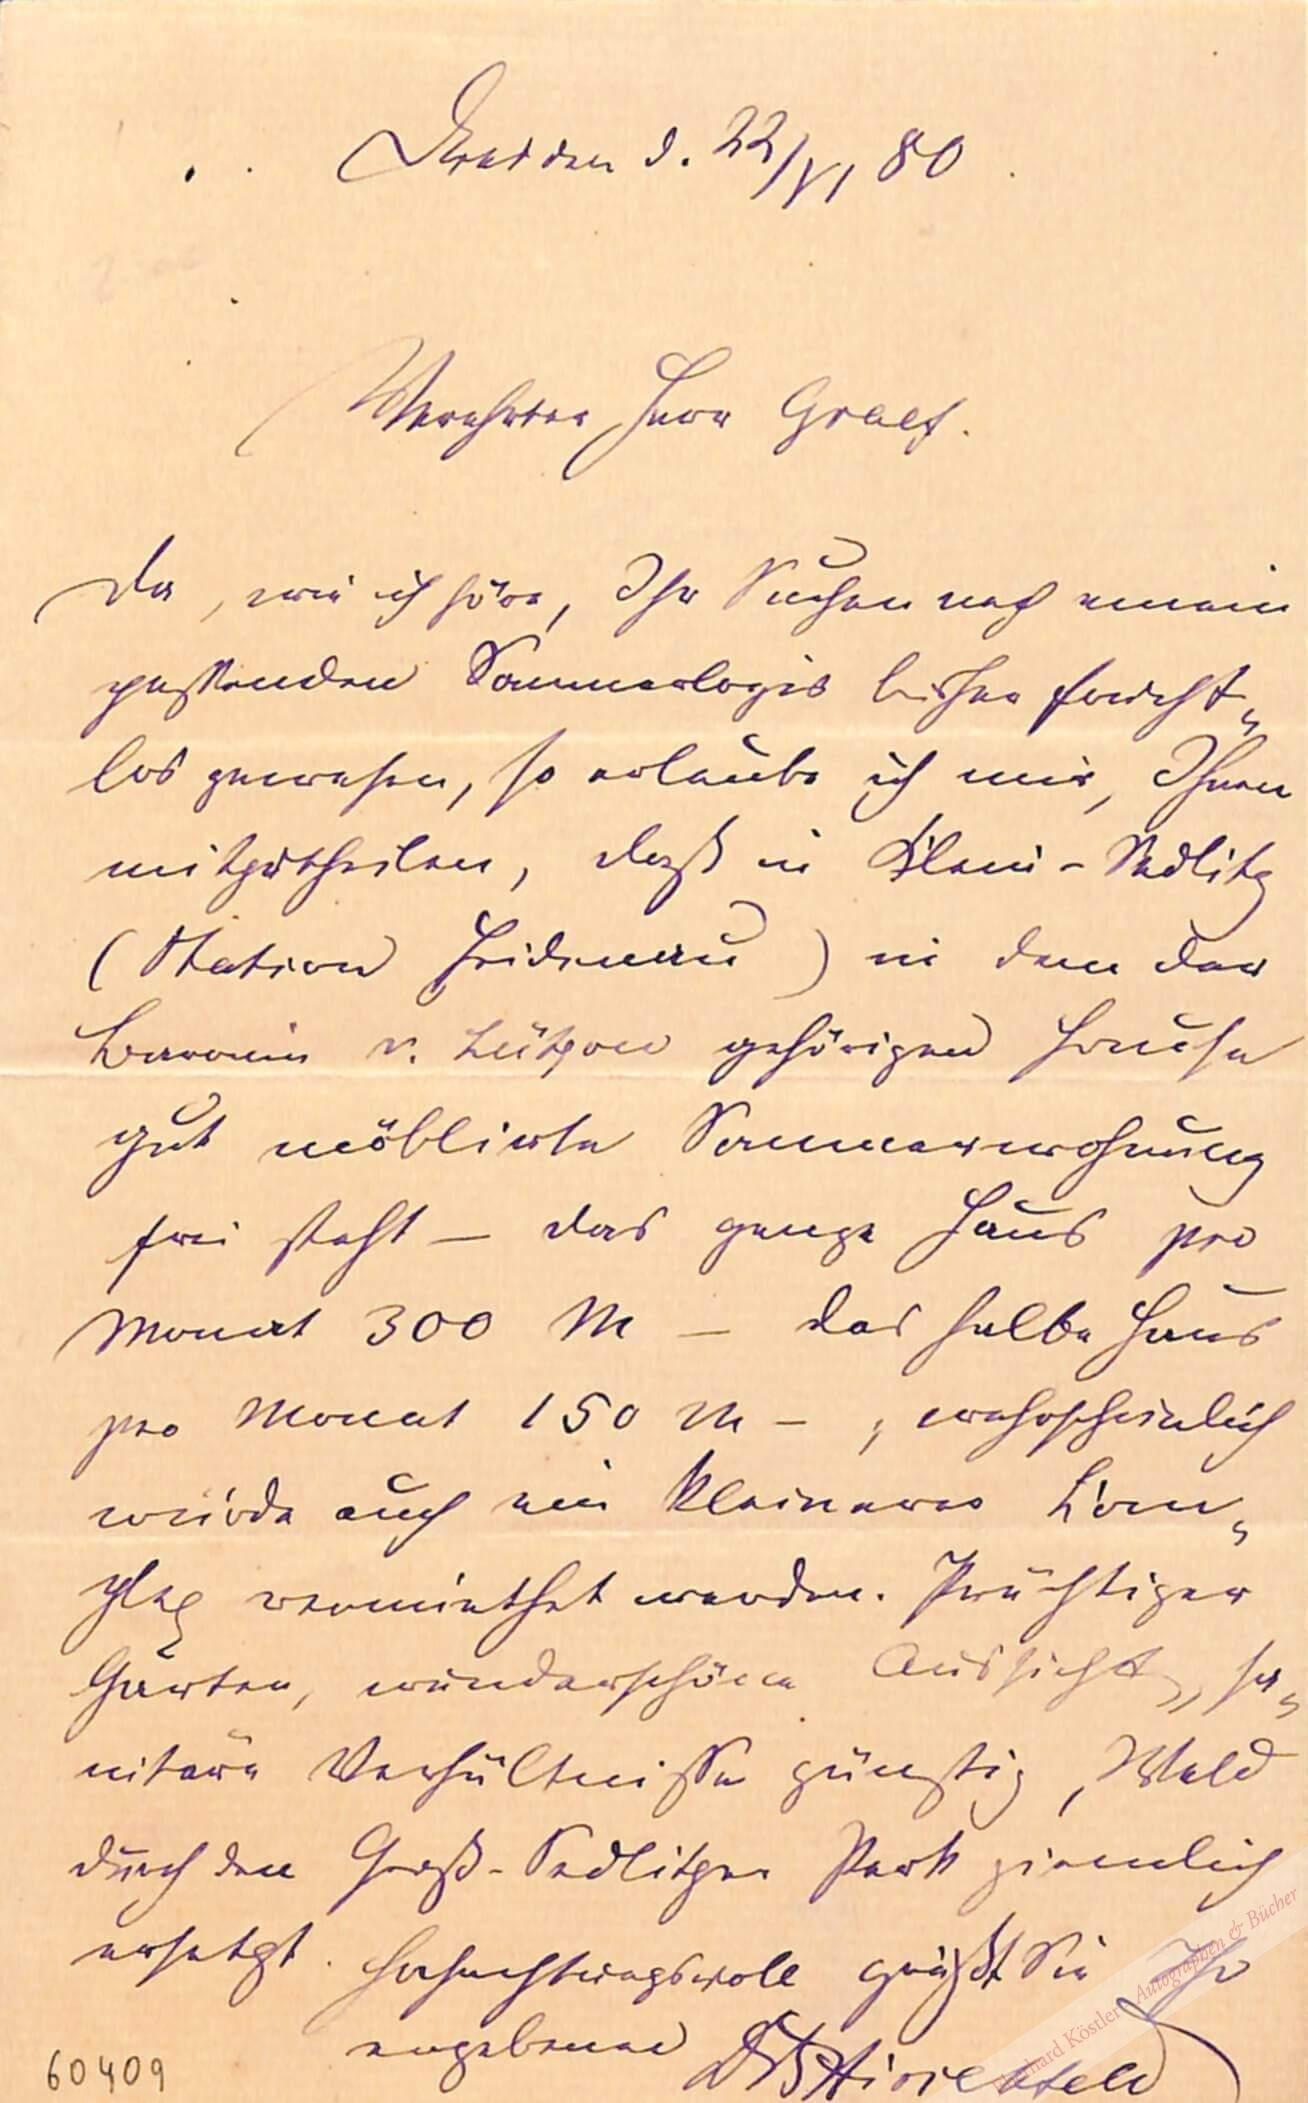 Dresden d. 22/VI 80
Verehrter Herr Graef.
Da, wie ich höre, Ihr Suchen nach einem
passenden Sommerlogis bisher frucht-
los gewesen, so erlaube ich mir, Ihnen
mitzutheilen, daß in Klein-Sedlitz
(Station Heidenau) in dem der
Baronin v. Lützow gehörigen Hause
gut möblirte Sommerwohnung
frei steht – das ganze Haus pro
Monat 300 M – das halbe Haus
pro Monat 150 M –, wahrscheinlich
würde auch ein kleinerer Com-
plex vermiethet werden. Prächtiger
Garten, wunderschöne Aussicht, sa-
nitäre Verhältnisse günstig, Wald
durch den Groß-Sedlitzer Park ziemlich
ersetzt. Hochachtungsvoll grüßt Sie Ihr
ergebener Hirschfeld
60409
Eberhard Köstler Autographen & Bücher